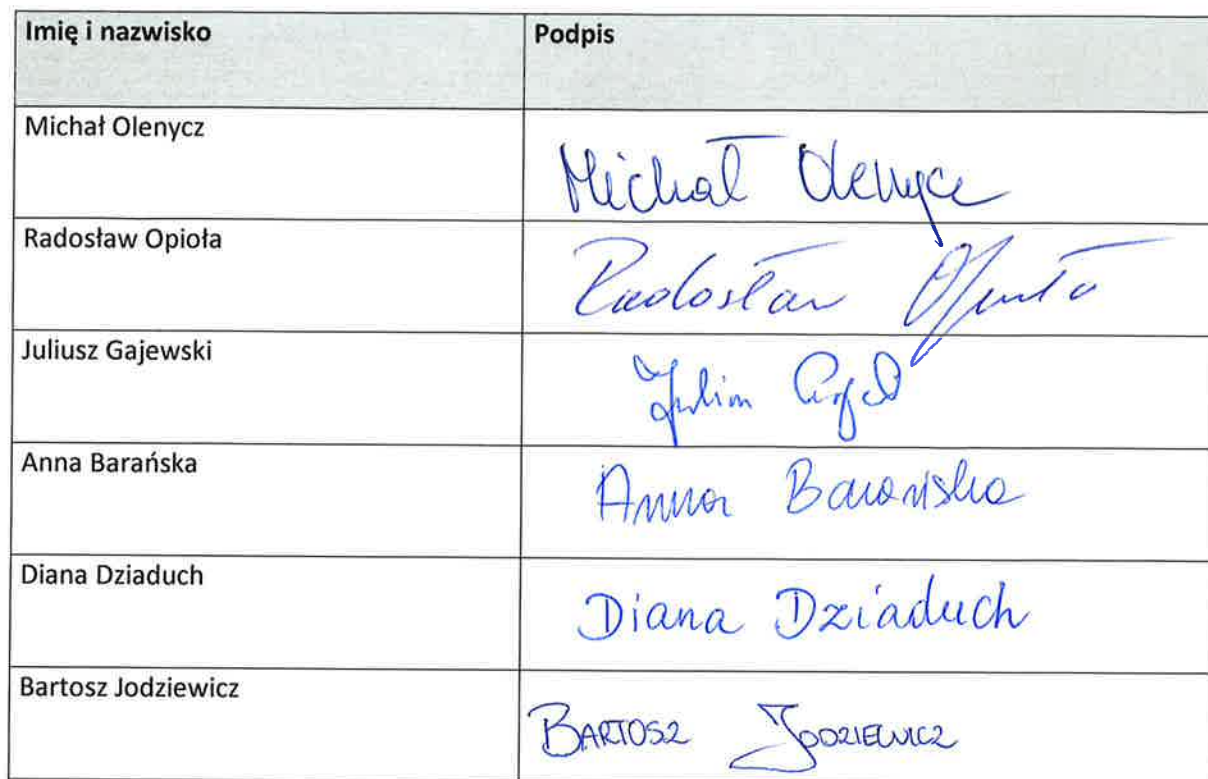 Imię i nazwisko Podpis
Michał Olenycz
Michał Olenycz
Radosław Opioła
Radosław Opioła
Juliusz Gajewski
Anna Barańska
Anna Barańska
Diana Dziaduch
Diana Dziaduch
Bartosz Jodziewicz
BARTOSZ JODZIEWICZ